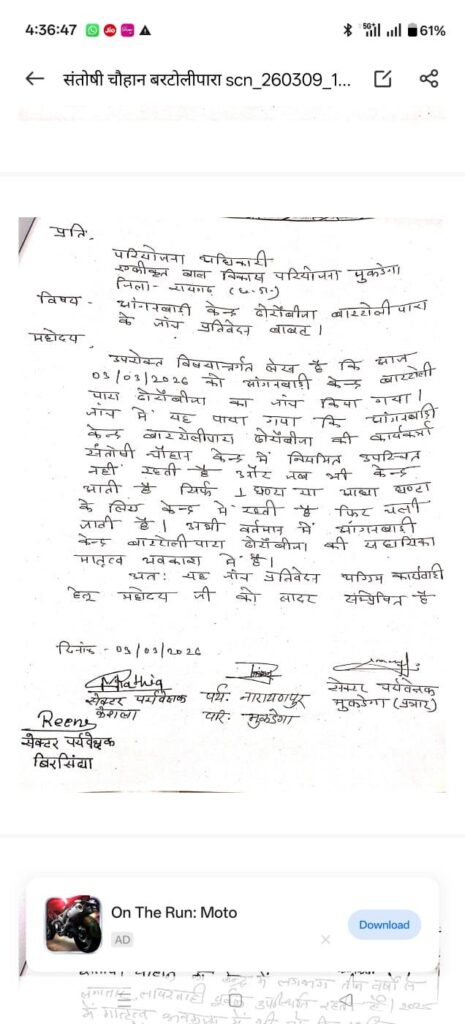 4:36:47
5G+
61%
संतोषी चौहान बरटोलीपारा scn_260309_1...
प्रति,
परियोजना अधिकारी
एकीकृत बाल विकास परियोजना मुकडेगा
जिला - रायगढ़ (छ.ग.)
विषय - आंगनबाड़ी केन्द्र ढोर्रोबीजा बारटोलीपारा
के जांच प्रतिवेदन बाबत।
महोदय
उपरोक्त विषयान्तर्गत लेख है कि आज
09/03/2026 को आंगनबाड़ी केन्द्र बारटोली
पारा ढोर्रोबीजा का जांच किया गया।
जांच में यह पाया गया कि आंगनबाड़ी
केन्द्र बारटोलीपारा ढोर्रोबीजा की कार्यकर्ता
संतोषी चौहान केन्द्र में नियमित उपस्थित
नहीं रहती है और जब भी केन्द्र
आती है सिर्फ 1 घण्टा या आधा घण्टा
के लिए केन्द्र में रहती है फिर चली
जाती है। अभी वर्तमान में आंगनबाड़ी
केन्द्र बारटोलीपारा ढोर्रोबीजा की सहायिका
मातृत्व अवकाश में है।
अतः यह जांच प्रतिवेदन अग्रिम कार्यवाही
हेतु महोदय जी को सादर संप्रेषित है
दिनांक - 09/03/2026
सेक्टर पर्यवेक्षक
पर्य. नारायणपुर
परि. मुकडेगा
सेक्टर पर्यवेक्षक
मुकडेगा (प्रभार)
Reena
सेक्टर पर्यवेक्षक
बिरसिंघा
On The Run: Moto
AD
Download
में लगभग तीन वर्षों से
लगातार लापरवाही